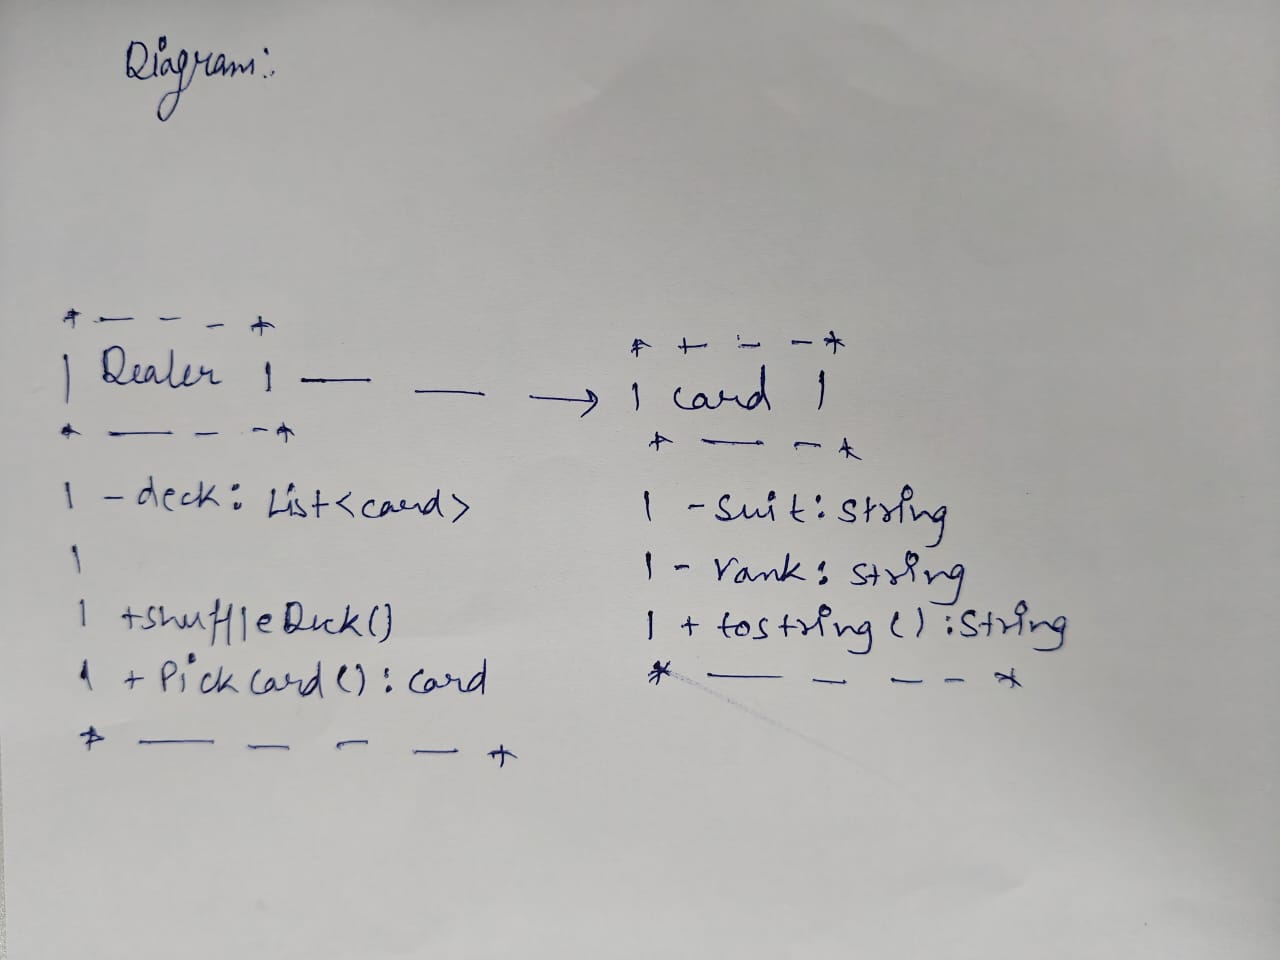 Diagram:
* - - - *
| Dealer | — — → | card |
* - - - *
| - deck: List<card>
|
| + shuffleDeck()
| + Pickcard(): card
* - - - - +
* + - - *
* - - *
| - suit: string
| - rank: string
| + tostring(): String
* - - - - *